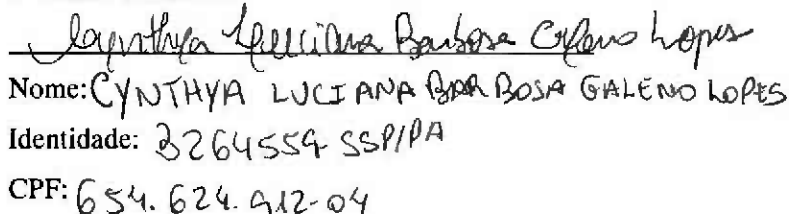 Cynthya Lucciana Barbosa Galeno Lopes
Nome: CYNTHYA LUCIANA BARBOSA GALENO LOPES
Identidade: 3264559 SSP/PA
CPF: 654.624.912-04